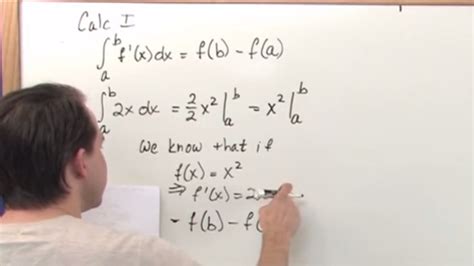 Calc I
∫_a^b f'(x)dx = f(b) - f(a)
∫_a^b 2x dx = 2/2 x² |_a^b = x² |_a^b
We know that if
f(x) = x²
⇒ f'(x) = 2
- f(b) - f(